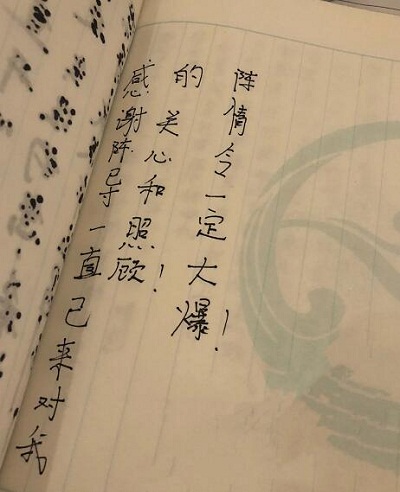 感谢陈导一直己来对我
的关心和照顾!
陈情令一定大爆!